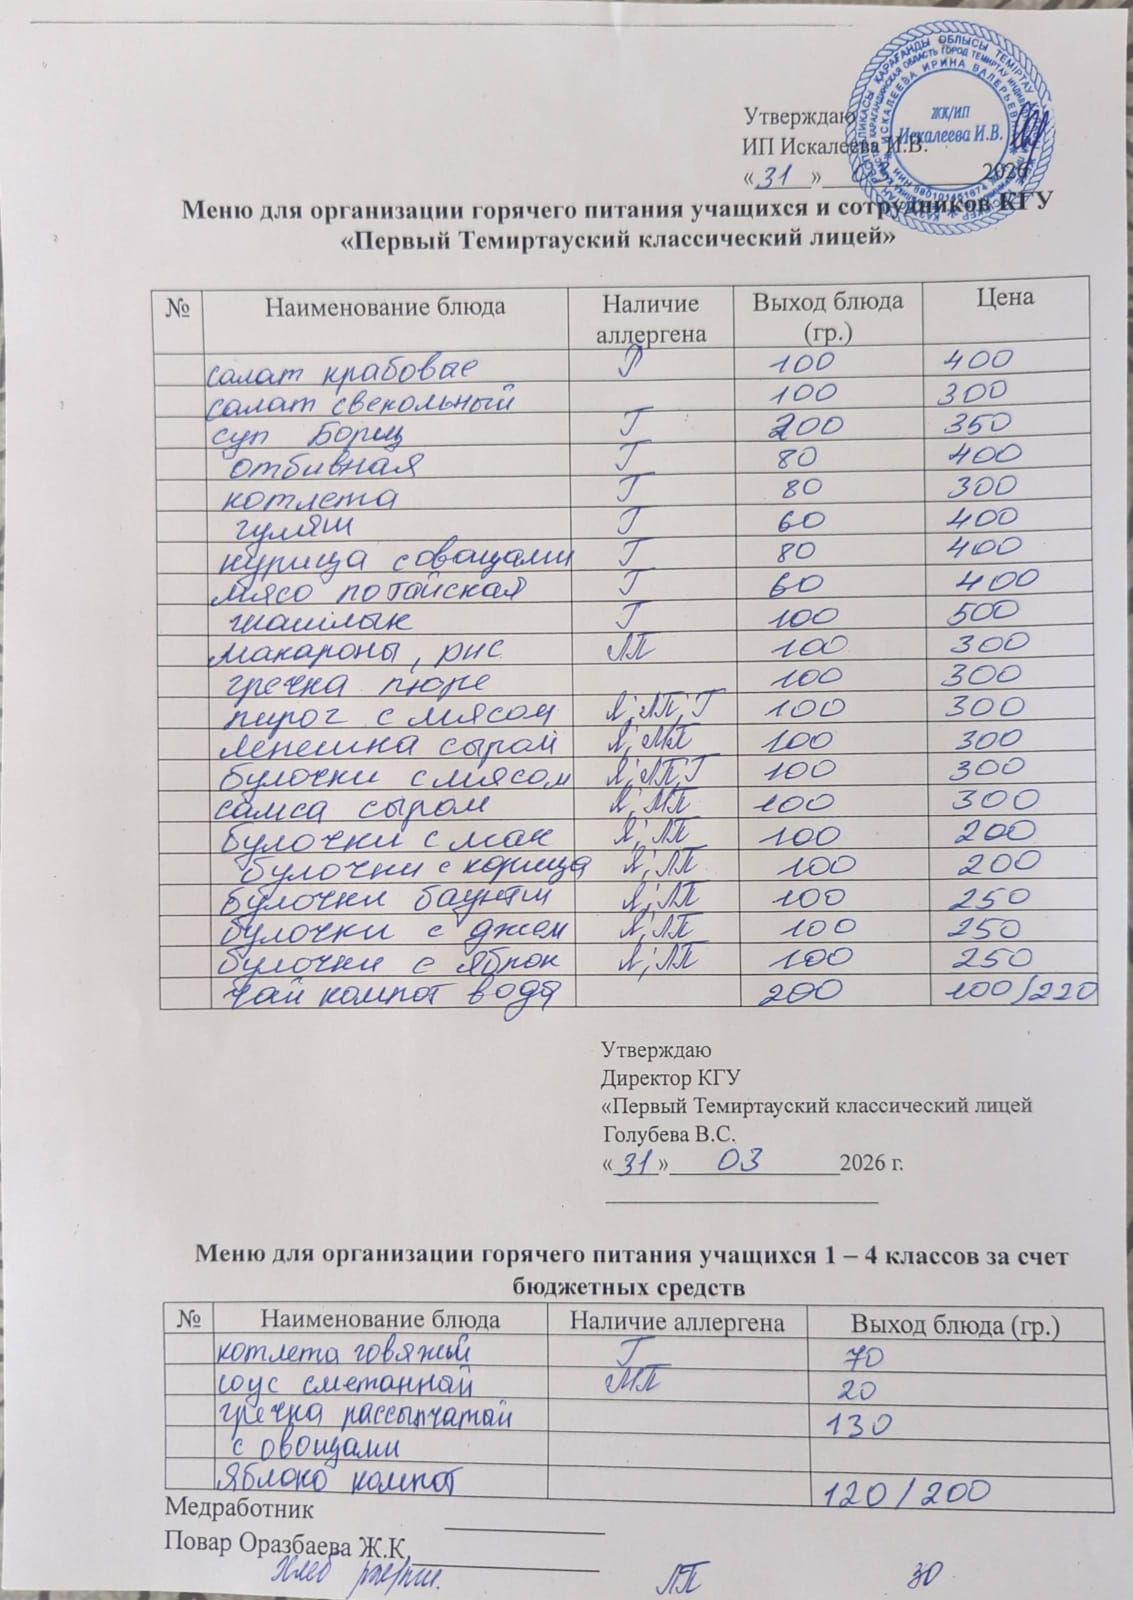 Утверждаю
ИП Искалеева И.В.
«31» 03 2026
ЖК/ИП
Искалеева И.В.
Меню для организации горячего питания учащихся и сотрудников КГУ
«Первый Темиртауский классический лицей»
№ Наименование блюда Наличие аллергена Выход блюда (гр.) Цена
салат крабовые Р 100 400
салат свекольный 100 300
суп Борщ Г 200 350
отбивная Г 80 400
котлета Г 80 300
гуляш Г 60 400
курица с овощами Г 80 400
мясо по тайская Г 60 400
шашлык Г 100 500
макароны, рис ЛП 100 300
гречка пюре 100 300
пирог с мясом Я; ЛП; Г 100 300
лепешка сыром Я; МП 100 300
булочки с мясом Я; ЛП; Г 100 300
самса сыром Я; МП 100 300
булочки с мак Я; ЛП 100 200
булочки с корица Я; ЛП 100 200
булочки баунти Я; ЛП 100 250
булочки с джем Я; ЛП 100 250
булочки с яблок Я; ЛП 100 250
чай компот вода 200 100/220
Утверждаю
Директор КГУ
«Первый Темиртауский классический лицей
Голубева В.С.
«31» 03 2026 г.
Меню для организации горячего питания учащихся 1 – 4 классов за счет
бюджетных средств
№ Наименование блюда Наличие аллергена Выход блюда (гр.)
котлета говяжьй Г 70
соус сметанный МП 20
гречка рассыпчатай 130
с овощами
Яблоко компот 120/200
Медработник
Повар Оразбаева Ж.К.
Хлеб ЛП 30